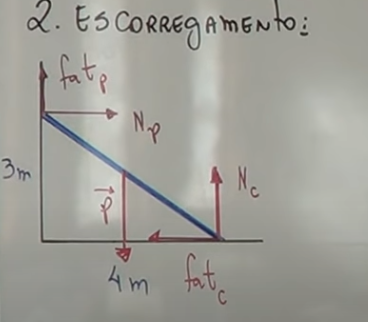 2. ESCORREGAMENTO:
fat_p
N_p
3m
P
N_c
4m
fat_c